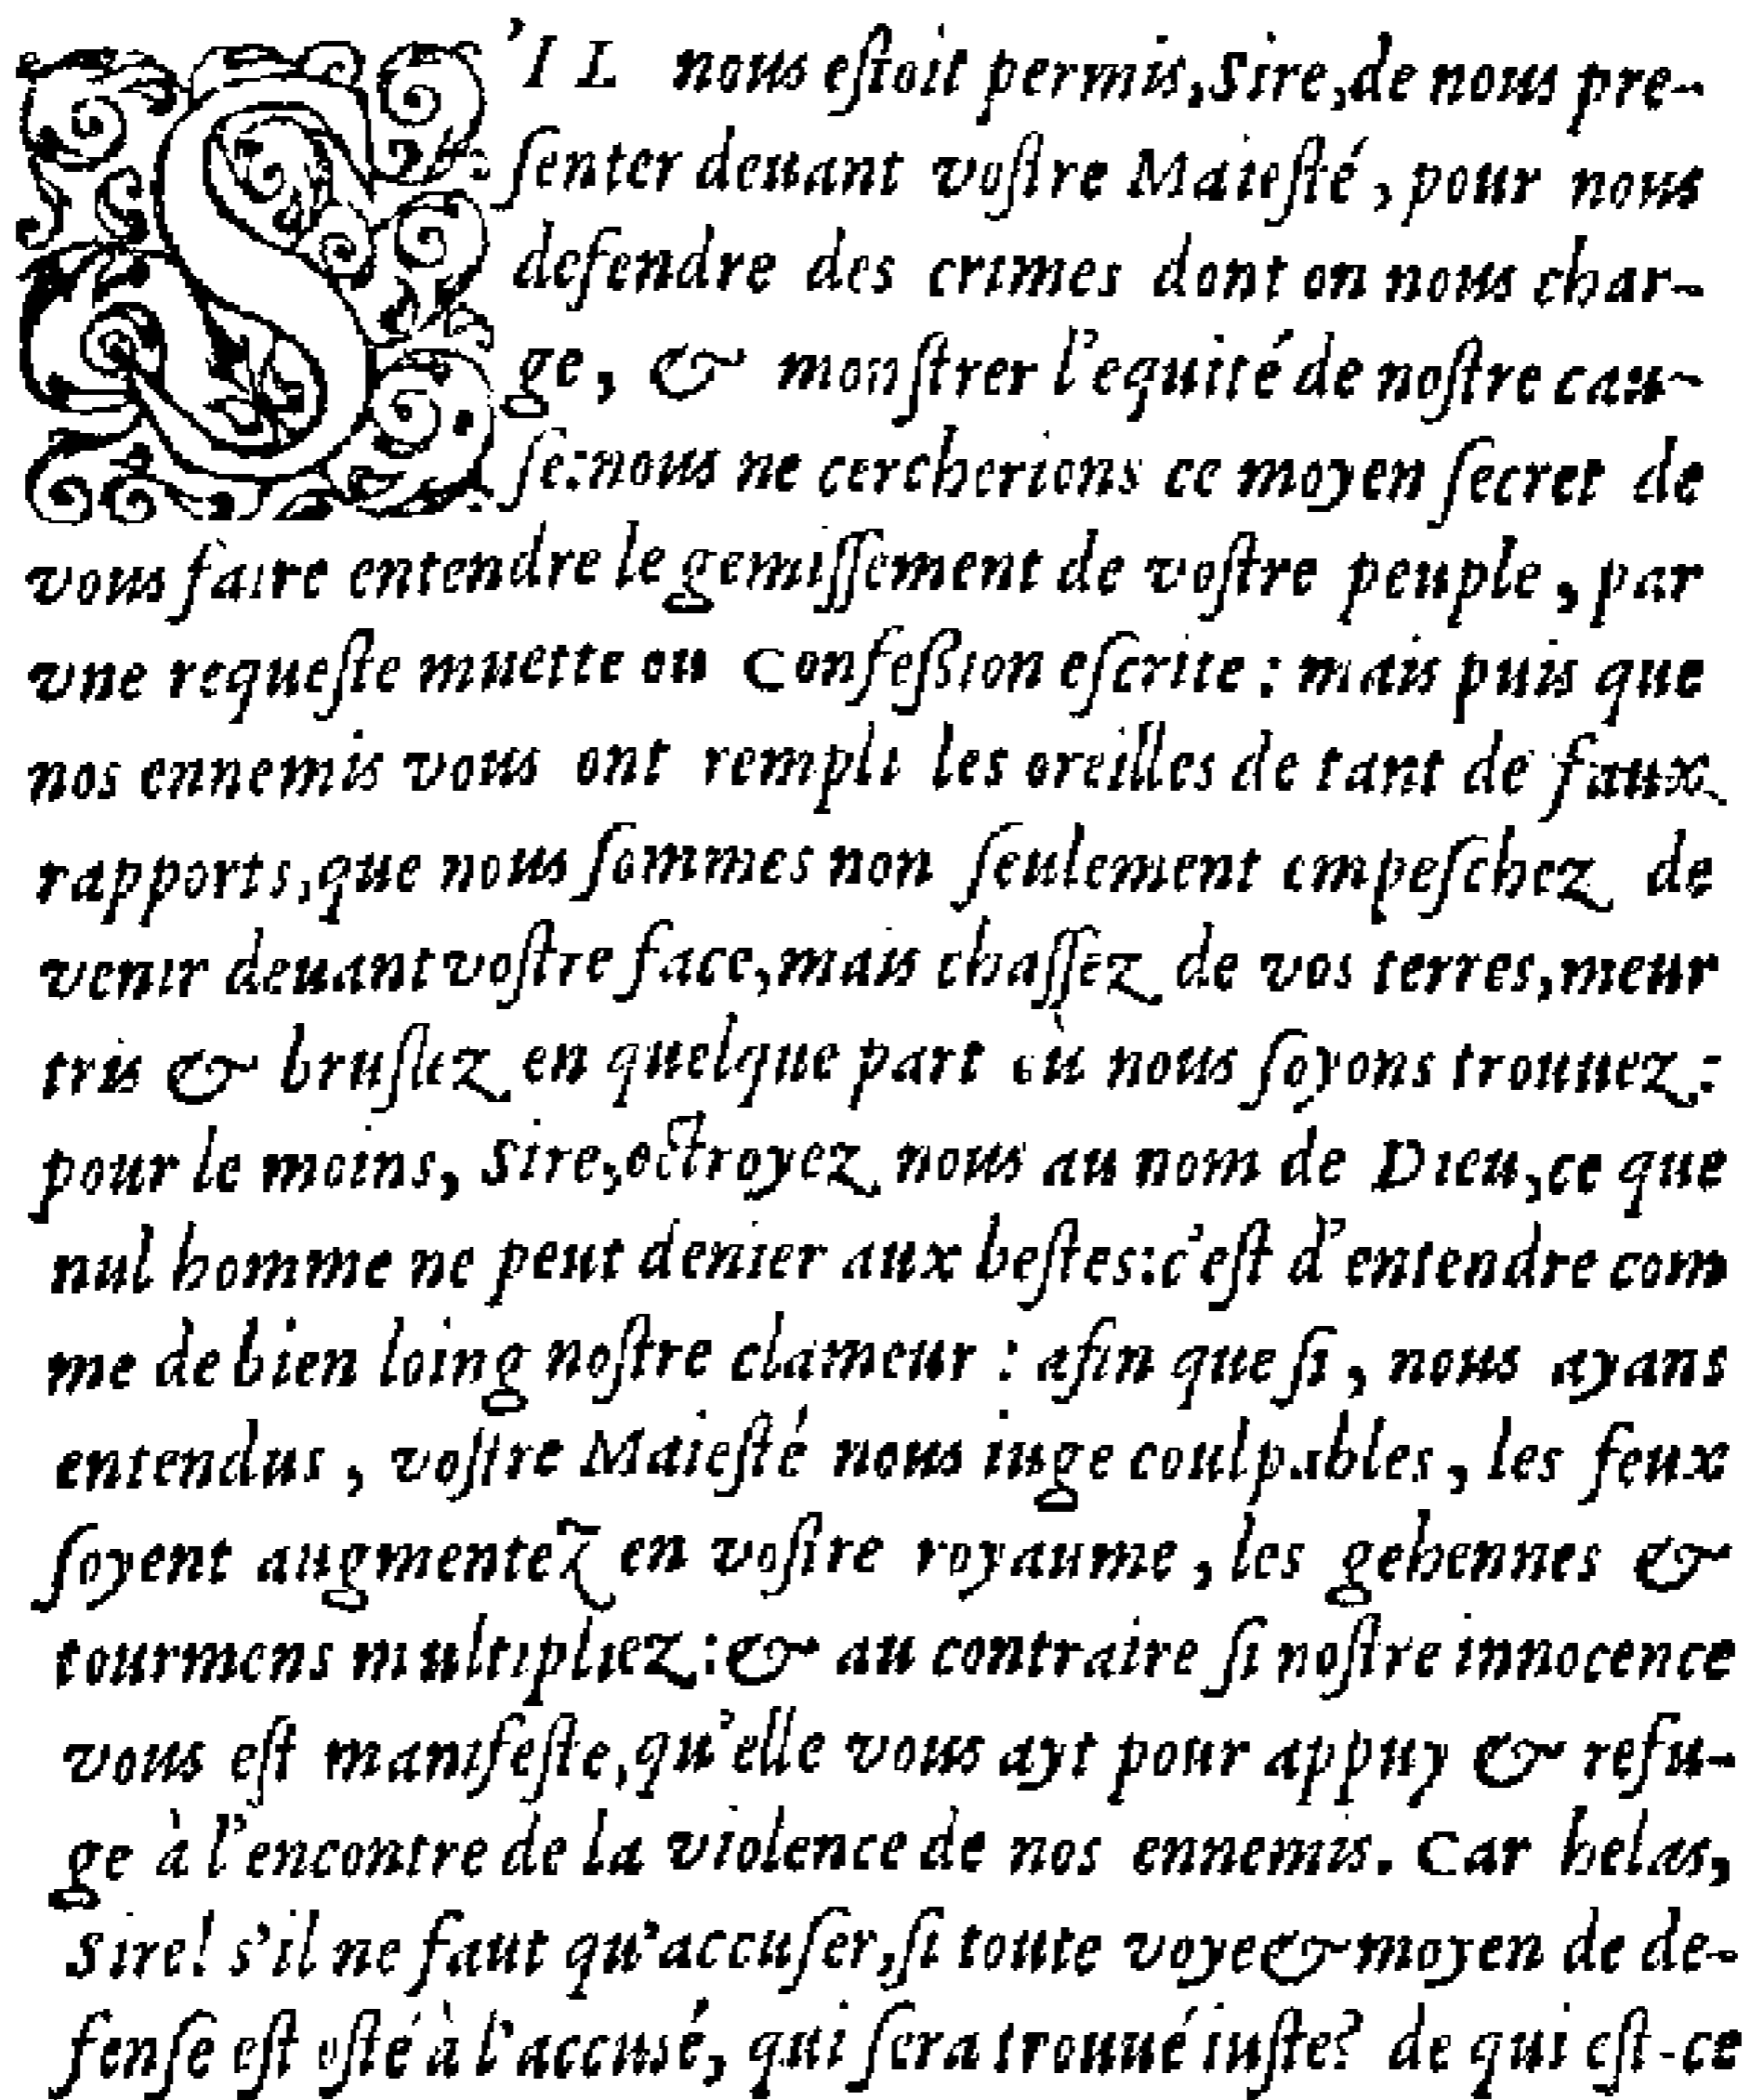 S'IL nous eſtoit permis, Sire, de nous pre-
ſenter deuant voſtre Maieſté, pour nous
defendre des crimes dont on nous char-
ge, & monſtrer l'equité de noſtre cau-
ſe: nous ne cercherions ce moyen ſecret de
vous faire entendre le gemiſſement de voſtre peuple, par
vne requeſte muette ou Confeßion eſcrite: mais puis que
nos ennemis vous ont rempli les oreilles de tant de faux
rapports, que nous ſommes non ſeulement empeſchez de
venir deuant voſtre face, mais chaſſez de vos terres, meur
tris & bruſlez en quelque part où nous ſoyons trouuez:
pour le moins, Sire, octroyez nous au nom de Dieu, ce que
nul homme ne peut denier aux beſtes: c'eſt d'entendre com
me de bien loing noſtre clameur: afin que ſi, nous ayans
entendus, voſtre Maieſté nous iuge coulpables, les feux
ſoyent augmentez en voſtre royaume, les gehennes &
tourmens multipliez: & au contraire ſi noſtre innocence
vous eſt manifeſte, qu'elle vous ayt pour appuy & refu-
ge à l'encontre de la violence de nos ennemis. Car helas,
Sire! s'il ne faut qu'accuſer, ſi toute voye & moyen de de-
fenſe eſt oſté à l'accusé, qui ſera trouué iuſte? de qui eſt-ce